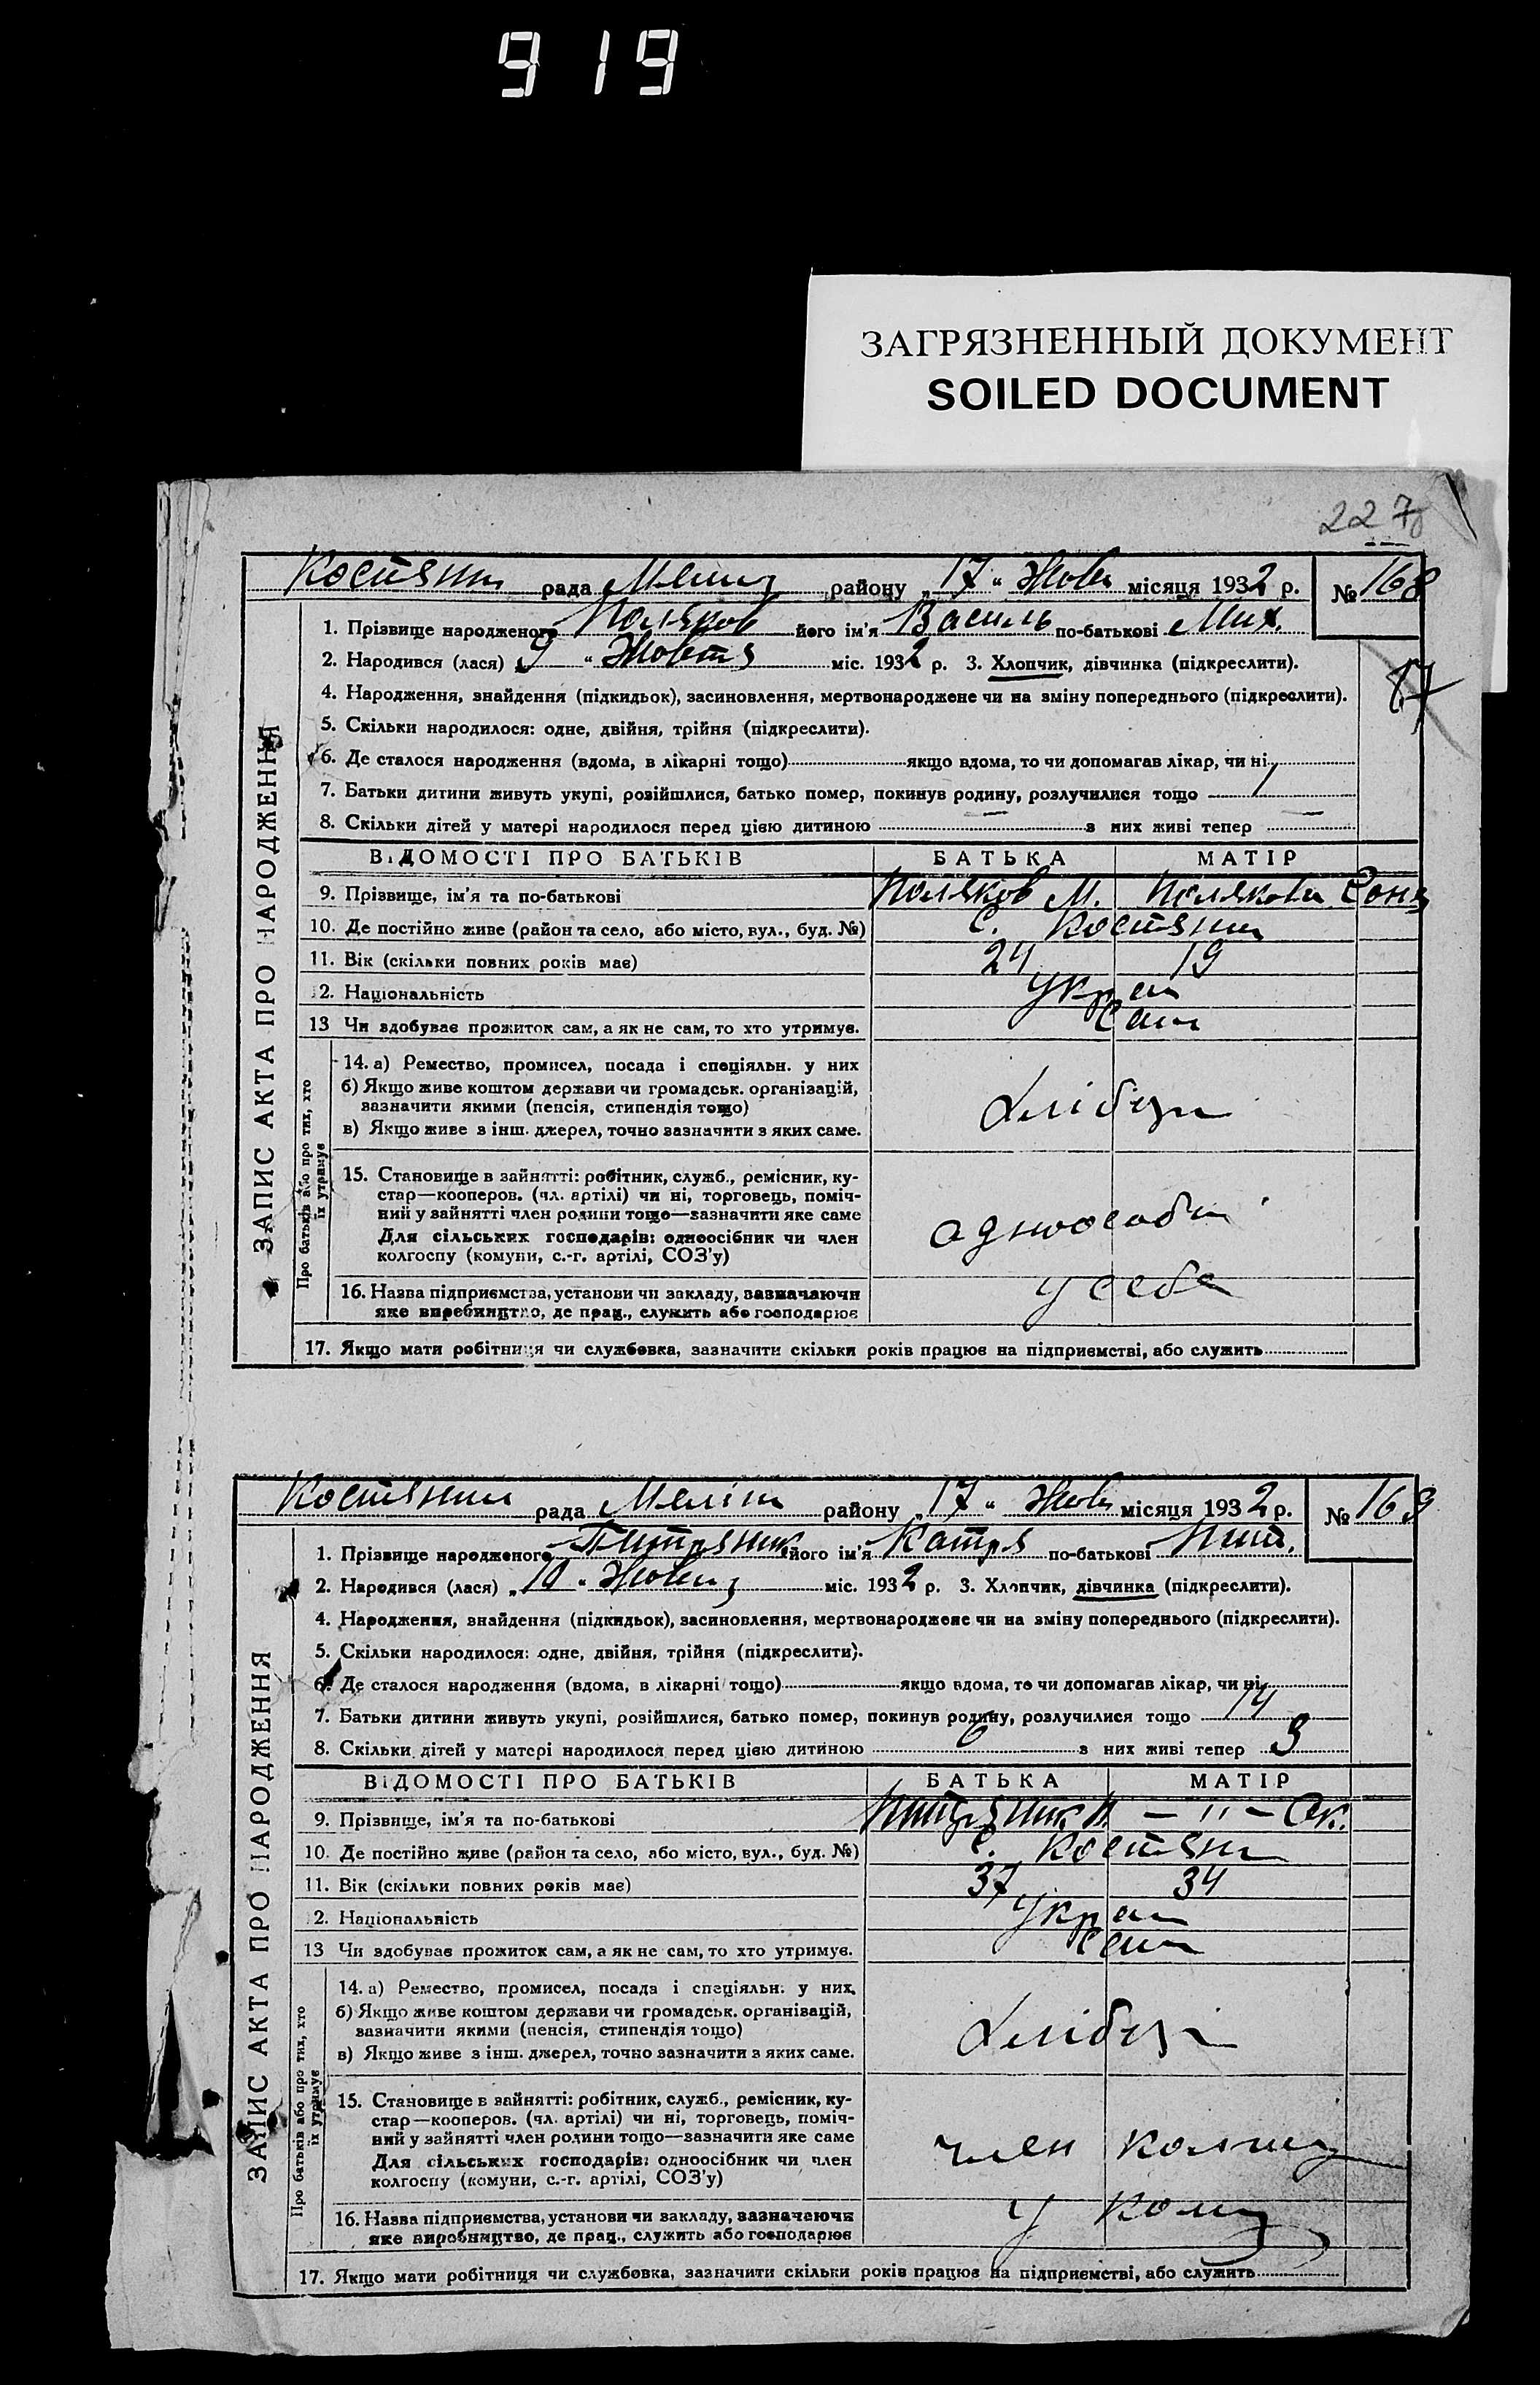 919
ЗАГРЯЗНЕННЫЙ ДОКУМЕНТ
SOILED DOCUMENT
227
ЗАПИС АКТА ПРО НАРОДЖЕННЯ
рада району „17“ Жовт місяця 1932 р. № 168
1. Прізвище народженого Поляков його ім'я Василь по-батькові Мих.
2. Народився (лася) „9“ Жовтя міс. 1932 р. 3. Хлопчик, дівчинка (підкреслити).
87
4. Народження, знайдення (підкидьок), засиновлення, мертвонароджене чи на зміну попереднього (підкреслити).
5. Скільки народилося: одне, двійня, трійня (підкреслити).
6. Де сталося народження (вдома, в лікарні тощо) якщо вдома, то чи допомагав лікар, чи ні
7. Батьки дитини живуть укупі, розійшлися, батько помер, покинув родину, розлучилися тощо 1
8. Скільки дітей у матері народилося перед цією дитиною — з них живі тепер —
ВІДОМОСТІ ПРО БАТЬКІВ БАТЬКА МАТІР
9. Прізвище, ім'я та по-батькові Поляков М. Полякова Соня
10. Де постійно живе (район та село, або місто, вул., буд. №) с.
11. Вік (скільки повних років має) 24 19
12. Національність Укра
13 Чи здобуває прожиток сам, а як не сам, то хто утримує. Сам
Про батьків або про тих, хто їх утримує
14. а) Ремество, промисел, посада і спеціяльн. у них
б) Якщо живе коштом держави чи громадськ. організацій,
зазначити якими (пенсія, стипендія тощо)
в) Якщо живе з інш. джерел, точно зазначити з яких саме.
15. Становище в зайнятті: робітник, служб., ремісник, ку-
стар—кооперов. (чл. артілі) чи ні, торговець, поміч-
ний у зайнятті член родини тощо—зазначити яке саме
Для сільських господарів: одноосібник чи член
колгоспу (комуни, с.-г. артілі, СОЗ'у)
16. Назва підприємства, установи чи закладу, зазначаючи у себе
яке виробництво, де прац., служить або господарює
17. Якщо мати робітниця чи службовка, зазначити скільки років працює на підприємстві, або служить
ЗАПИС АКТА ПРО НАРОДЖЕННЯ
рада району „17“ Жовт місяця 1932 р. № 169
1. Прізвище народженого його ім'я Катря по-батькові
2. Народився (лася) „10“ міс. 1932 р. 3. Хлопчик, дівчинка (підкреслити).
4. Народження, знайдення (підкидьок), засиновлення, мертвонароджене чи на зміну попереднього (підкреслити).
5. Скільки народилося: одне, двійня, трійня (підкреслити).
6. Де сталося народження (вдома, в лікарні тощо) якщо вдома, то чи допомагав лікар, чи ні
7. Батьки дитини живуть укупі, розійшлися, батько помер, покинув родину, розлучилися тощо 14
8. Скільки дітей у матері народилося перед цією дитиною 6 з них живі тепер 3
ВІДОМОСТІ ПРО БАТЬКІВ БАТЬКА МАТІР
9. Прізвище, ім'я та по-батькові — " — Ок.
10. Де постійно живе (район та село, або місто, вул., буд. №) с.
11. Вік (скільки повних років має) 37 34
12. Національність Укра
13 Чи здобуває прожиток сам, а як не сам, то хто утримує. Сам
Про батьків або про тих, хто їх утримує
14. а) Ремество, промисел, посада і спеціяльн. у них
б) Якщо живе коштом держави чи громадськ. організацій,
зазначити якими (пенсія, стипендія тощо)
в) Якщо живе з інш. джерел, точно зазначити з яких саме.
15. Становище в зайнятті: робітник, служб., ремісник, ку-
стар—кооперов. (чл. артілі) чи ні, торговець, поміч-
ний у зайнятті член родини тощо—зазначити яке саме член
Для сільських господарів: одноосібник чи член
колгоспу (комуни, с.-г. артілі, СОЗ'у)
16. Назва підприємства, установи чи закладу, зазначаючи у
яке виробництво, де прац., служить або господарює
17. Якщо мати робітниця чи службовка, зазначити скільки років працює на підприємстві, або служить